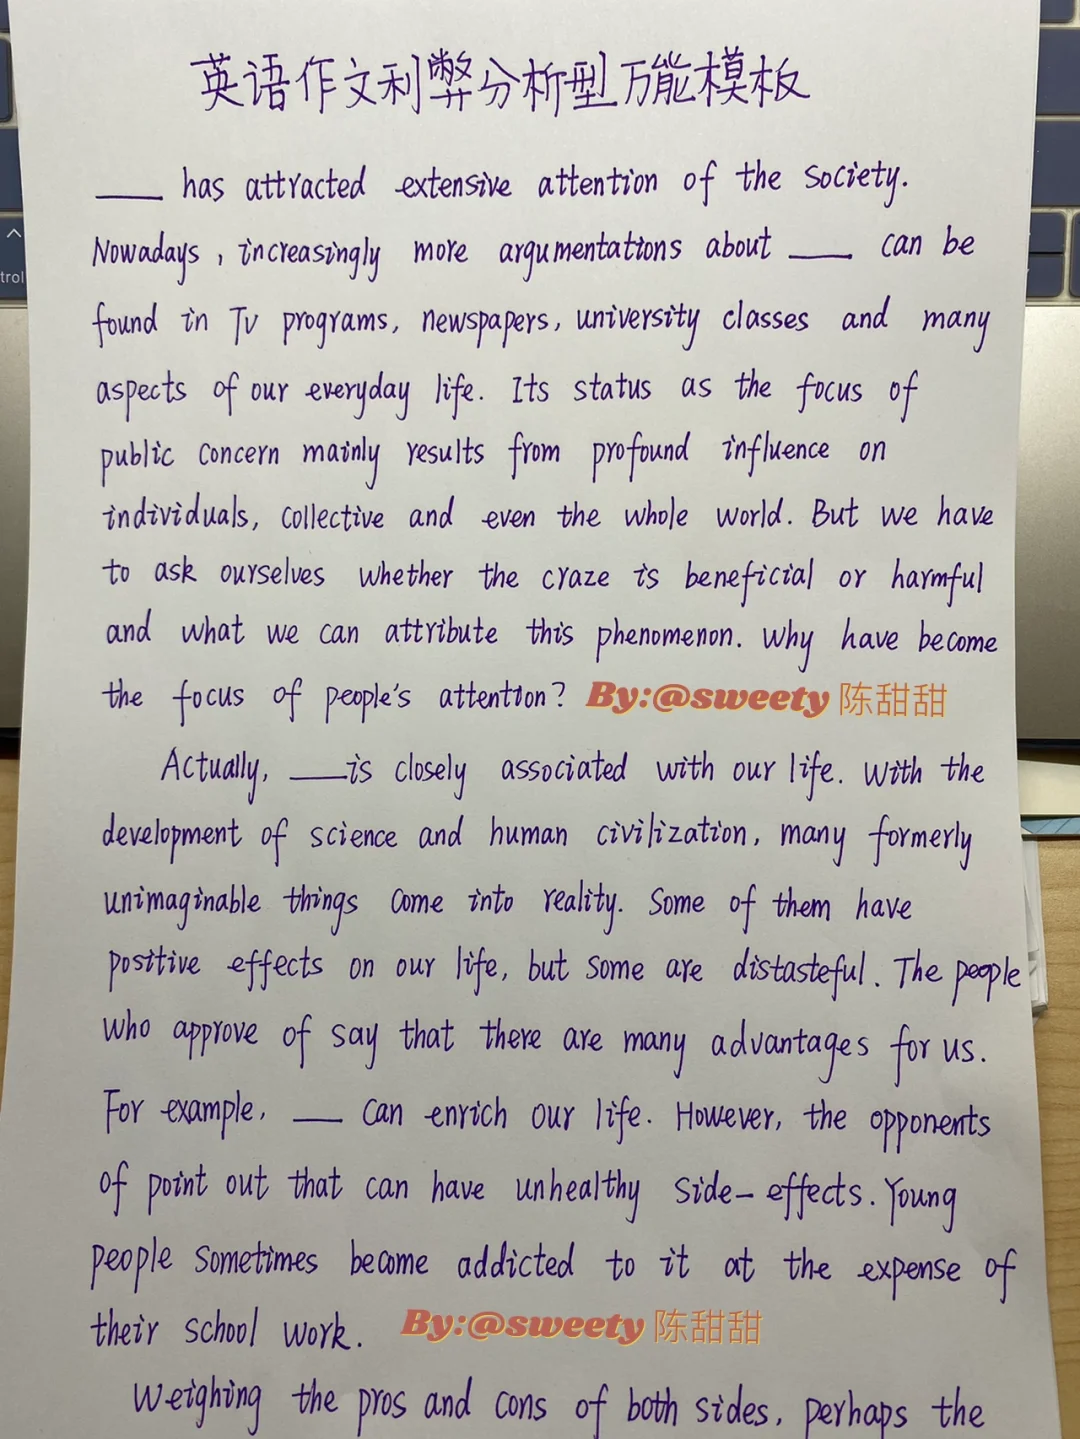 英语作文利弊分析型万能模板
____ has attracted extensive attention of the society.
Nowadays, increasingly more argumentations about ____ can be
found in TV programs, newspapers, university classes and many
aspects of our everyday life. Its status as the focus of
public concern mainly results from profound influence on
individuals, collective and even the whole world. But we have
to ask ourselves whether the craze is beneficial or harmful
and what we can attribute this phenomenon. Why have become
the focus of people's attention? By:@sweety 陈甜甜
Actually, ____ is closely associated with our life. With the
development of science and human civilization, many formerly
unimaginable things come into reality. Some of them have
positive effects on our life, but some are distasteful. The people
who approve of say that there are many advantages for us.
For example, ____ can enrich our life. However, the opponents
of point out that can have unhealthy side-effects. Young
people sometimes become addicted to it at the expense of
their school work. By:@sweety 陈甜甜
Weighing the pros and cons of both sides, perhaps the